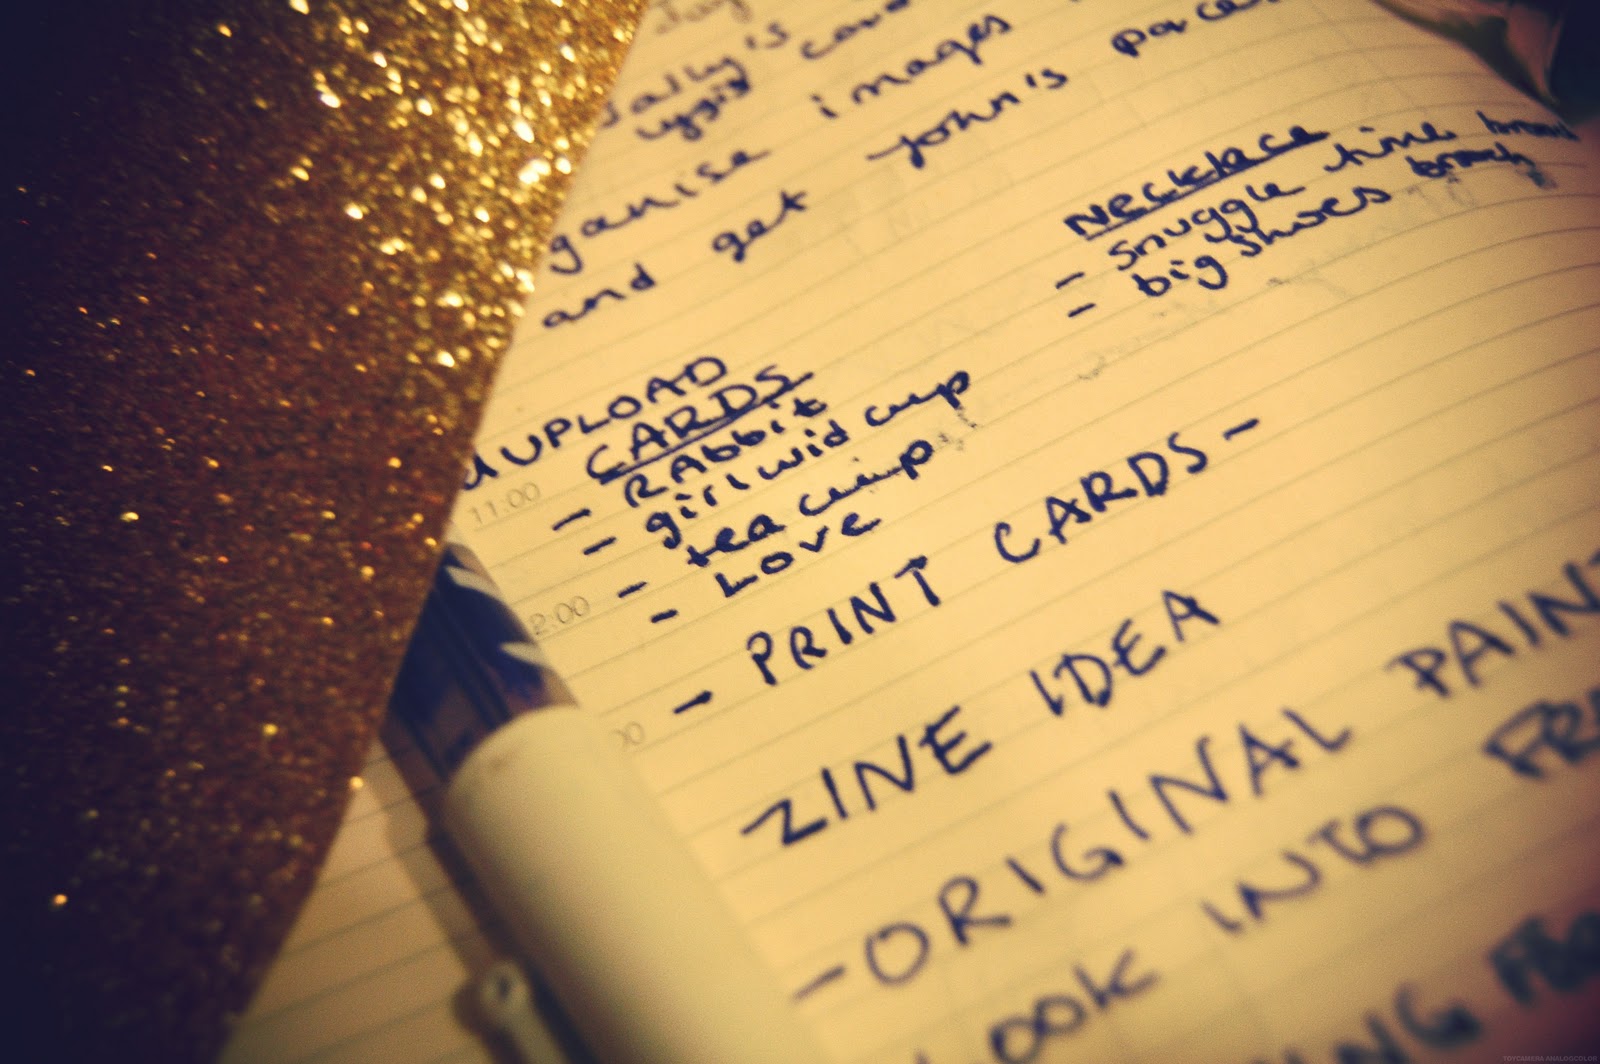 Sally's
card
organise images
and get John's parcel
Necklace
- snuggle time
- big shoes brooch
UPLOAD
CARDS
11:00
- RAbbit
- girl wid cup
- tea cup
2:00
- Love
- PRINT CARDS -
ZINE IDEA
- ORIGINAL PAINT
Look INTO FRA
ING
TOYCAMERA ANALOGCOLOR